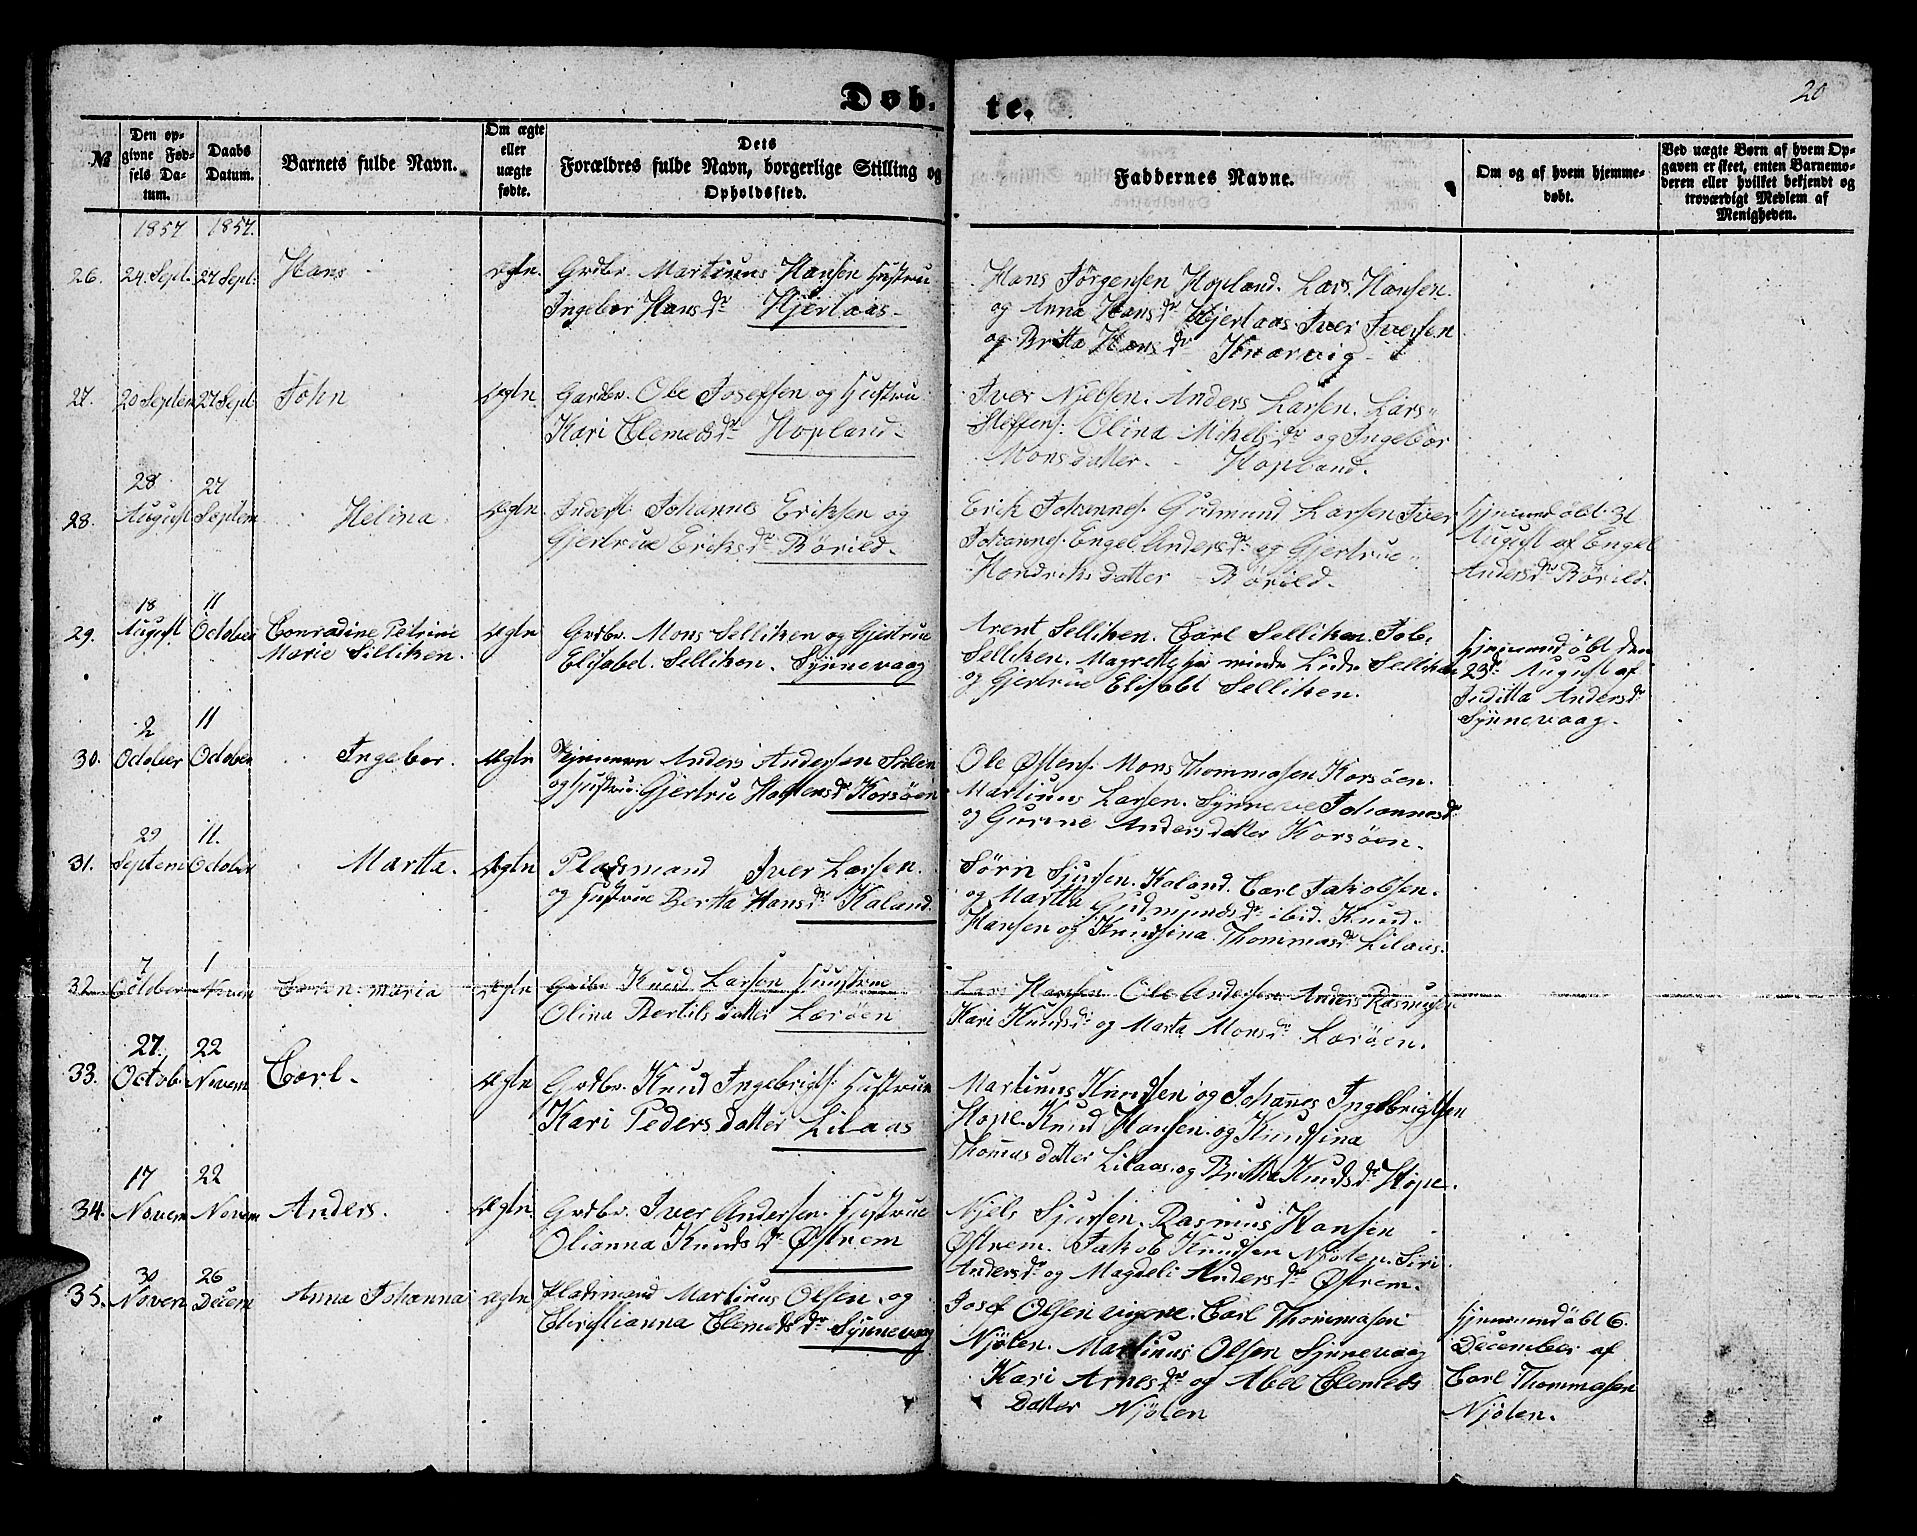 Døb.
te.
20
№
Den op-
givne Fød-
sels Da-
tum.
Daabs
Datum.
Barnets fulde Navn.
Om ægte
eller
uægte
fødte.
Dets
Forældres fulde Navn, borgerlige Stilling og
Opholdssted.
Faddernes Navne.
Om og af hvem hjemme-
døbt.
Ved uægte Børn af hvem Op-
gaven er skeet, enten Barnemo-
deren eller hvilket bekjendt og
troværdigt Medlem af
Menigheden.
1857 1857.
26. 24. Sept. 27 Sept: Hans Ægte. Grdbr. Martinus Hansen Hustrue
Ingebor Hans Dr Hjertaas
Hans Jørgensen Hopland. Lars Hansen.
og Anna Hans dr Hjertaas Iver Iversen
og Britta Hans dr Knarvig
27. 20 Septem 27 Sept John Ægte Gardbr. Ole Joseffsen og Hustru
Kari Clemeds dr Hopland
Iver Njelsen. Anders Larsen. Lars
Steffens: Olina Mikels dr og Ingebor
Monsdatter. Hopland.
28 27
28. August Septem Helina Ægte Inderst Johannes Eriksen og
Gjertrue Eriks dr Börild
Erik Johannes: Gudmund Larsen Iver
Johannes: Engel Anders dr og Gjertrue
Hendriks datter Börild.
Hjemmedöbt 31
August af Engel
Anders dr Börild
18 11
29. August October Conradine Petrine
Marie Silliken.
Ægte Grdbr. Mons Selliken og Gjertrue
Elisabet Selliken. Synnevaag
Arent Selliken. Carl Selliken. Job.
Selliken. Magrette Selliken
og Gjertrue Elisabt Selliken.
Hjemmedöbt den
23d August af
Juditta Anders dr
Synnevaag.
2 11
30. October October Ingebor. Ægte Anders Andersen
og Hustru Gjertru dr Korsöen
Ole Østens: Mons Thommasen Korsöen.
Martinus Larsen. Synneve Johannes dr
og Gurine Anders datter Korsöen.
29 11.
31. Septem October Martta. Ægte Pladsmand Iver Larsen.
og Hustrue Bertta Hans dr Kaland.
Sörn Sjursen. Kaland. Carl Jakobsen.
og Martta Gudmunds dr ibid. Knud
Hansen og Knudsina Thommas dr Lilaas.
7 1
32. October Novem maria Ægte Grdbr Knud Larsen Hustrue
Olina Bertils datter Laröen
Lars Hansen Ole Andersen. Anders Rasmusen
Kari Knuds dr og Marta Mons dr Laröen.
27. 22
33. Octob. Novem Carl. Ægte Grdbr. Knud Ingebrigts: Hustrue
Kari Peders datter Lilaas
Martinus Knudsen og Johanes Ingebrigtsen
Hope. Knud Hansen. og Knudsina
Thomas datter Lilaas. og Britha Knuds dr Hope.
17 22
34. Novem Novem Anders. Ægte. Grdbr. Iver Andersen. Hustrue
Olianna Knuds dr Østrem
Njels Sjursen. Rasmus Hansen
Østrem. Jakob Knudsen Njöten. Siri
Anders dr og Magdeli Anders dr Østrem.
30 26
35. Novem Decem Anna Johanna Ægte Pladsmand Martinus Olsen. og
Christianna Clemeds dr Synnevaag
Josef Olsen. Carl Thommasen
Njöten. Martinus Olsen Synnevaag
Kari Arnes dr og Abel Clemeds
datter Njöten
Hjemmedöbt 6.
December af
Carl Thommasen
Njöten.